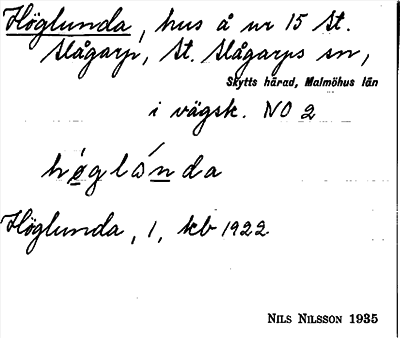 Höglunda, hus å nr 15 St.
Slågarp, St. Slågarps sn,
Skytts härad, Malmöhus län
i vägsk. NO 2
hø̱glón̠da
Höglunda, 1, kb 1922
NILS NILSSON 1935